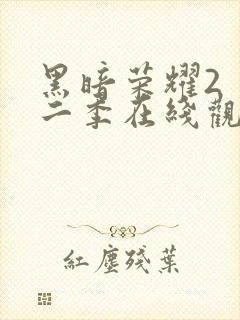 黑暗荣耀2
二季在线觀
紅塵殘葉